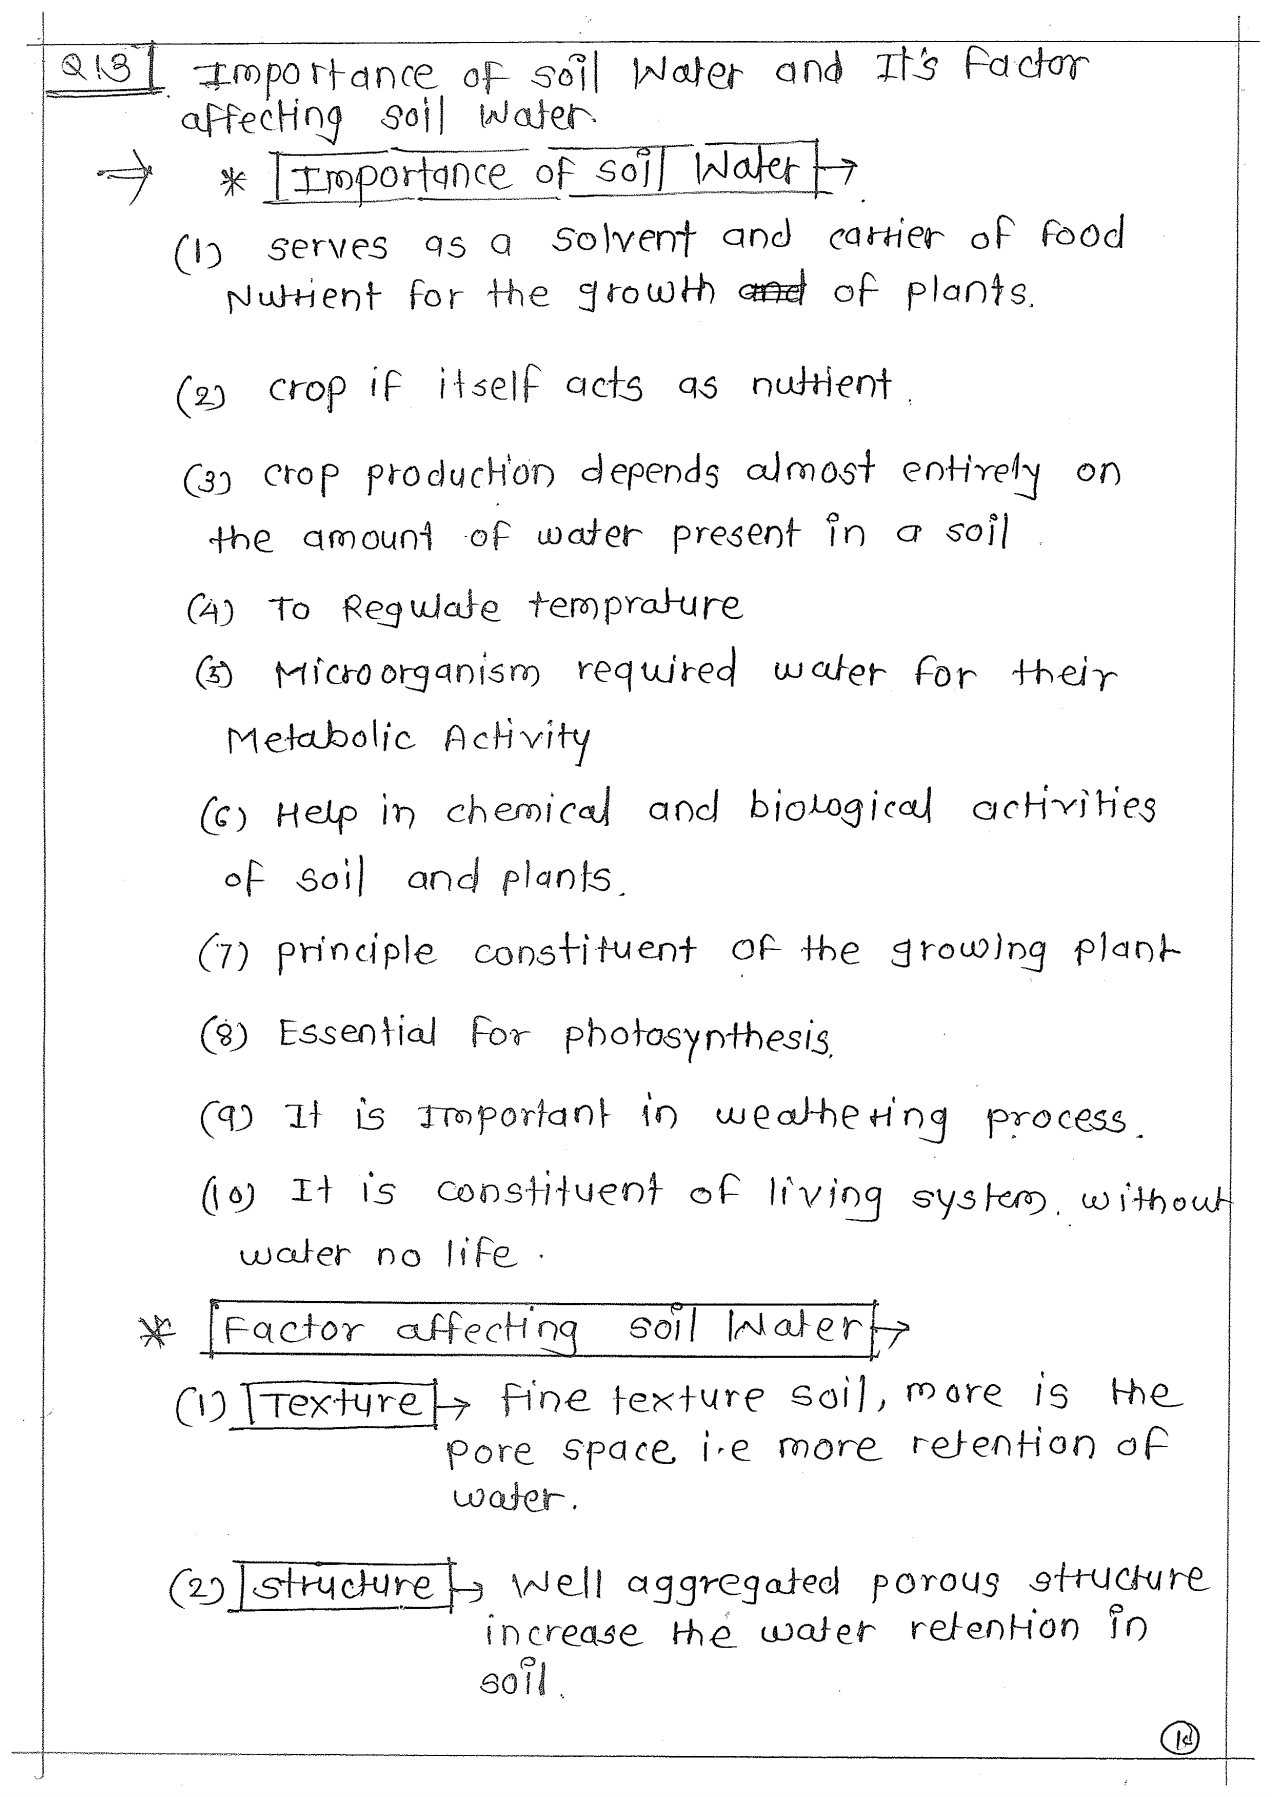 Q13 Importance of soil Water and It's Factor
affecting soil Water.
→ * Importance of soil Water →
(1) serves as a solvent and carrier of food
Nutrient for the growth and of plants.
(2) crop if itself acts as nutrient.
(3) crop production depends almost entirely on
the amount of water present in a soil.
(4) To Regulate temprature
(5) Microorganism required water for their
Metabolic Activity
(6) Help in chemical and biological activities
of soil and plants.
(7) principle constituent of the growing plant
(8) Essential for photosynthesis.
(9) It is Important in weathering process.
(10) It is constituent of living system. without
water no life.
* Factor affecting soil Water →
(1) Texture → Fine texture soil, more is the
pore space i.e more retention of
water.
(2) structure → Well aggregated porous structure
increase the water retention in
soil.